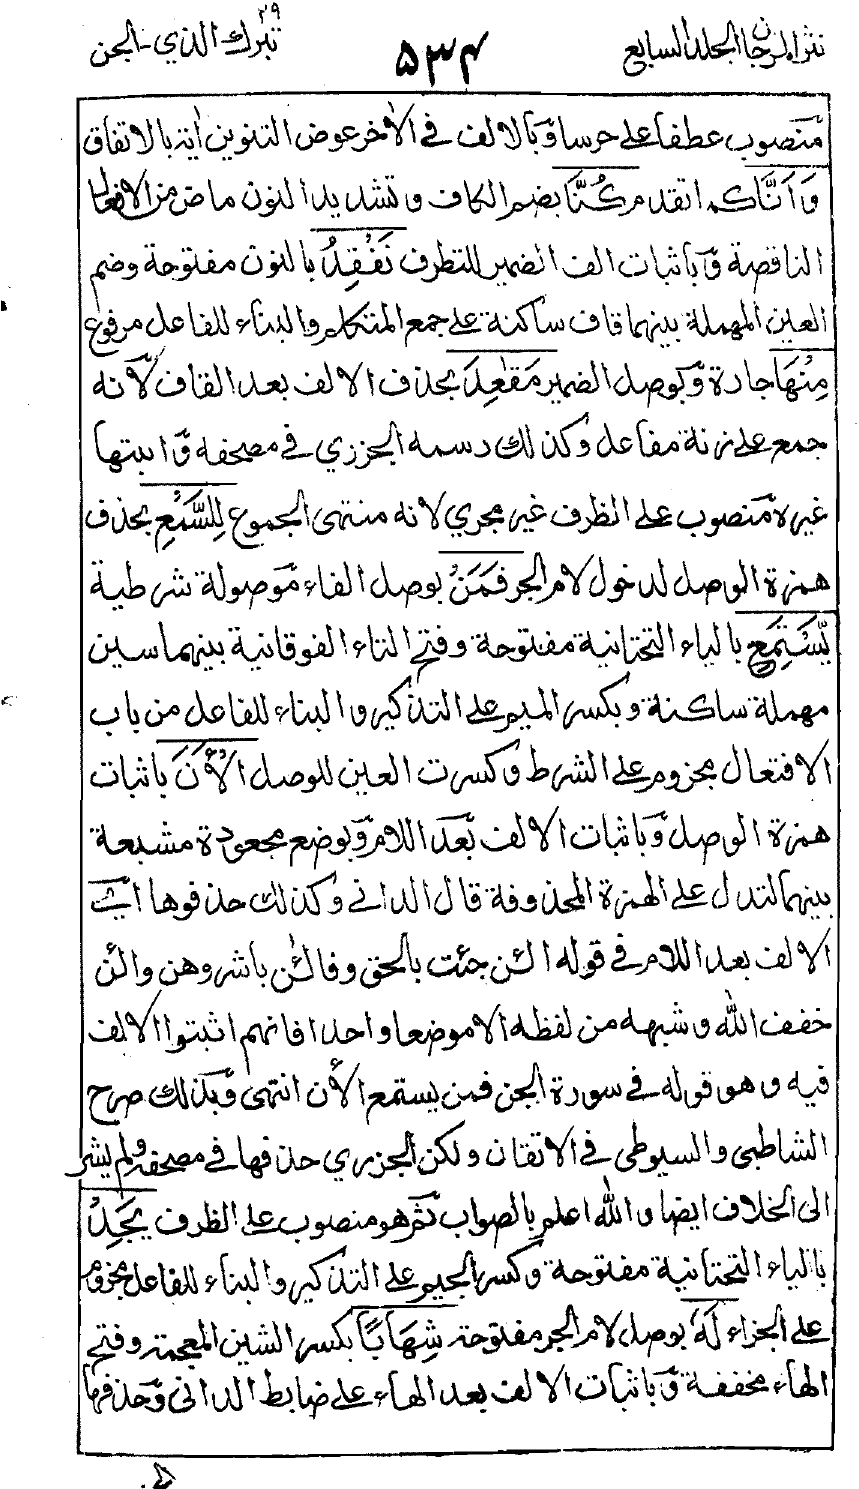 نثر المرجان الجلد السابع
۵۳۴
تبرك الذي ٢٩ - الجن
منصوب عطفا على حرسا وبالالف في الآخر عوض التنوين اية بالاتفاق
وَأَنَّا كما تقدم كُنَّا بضم الكاف وتشديد النون ماض من الافعال
الناقصة وباثبات الف الضمير للتطرف نَقْعُدُ بالنون مفتوحة وضم
العين المهملة بينهما قاف ساكنة على جمع المتكلم والبناء للفاعل مرفوع
مِنْهَا جارة وبوصل الضمير مَقَٰعِدَ بحذف الالف بعد القاف لأنه
جمع على زنة مفاعل وكذلك رسمه الجزري في مصحفه واثبتها
غيره منصوب على الظرف غير مجرى لانه منتهى الجموع لِلسَّمْعِ بحذف
همزة الوصل لدخول لام الجر فَمَنْ بوصل الفاء موصولة شرطية
يَّسْتَمِعِ بالياء التحتانية مفتوحة وفتح التاء الفوقانية بينهما سين
مهملة ساكنة وبكسر الميم على التذكير والبناء للفاعل من باب
الافتعال مجزوم على الشرط وكسرت العين للوصل الْأٰنَ باثبات
همزة الوصل وباثبات الالف بعد اللام وبوضع مجعودة مشبعة
بينهما لتدل على الهمزة المحذوفة قال الداني وكذلك حذفوها اي
الالف بعد اللام في قوله الـٰٔن جئت بالحق و فالـٰٔن باشروهن والـٰٔن
خفف الله وشبهه من لفظه الا موضعا واحدا فانهم اثبتوا الالف
فيه وهو قوله في سورة الجن فمن يستمع الأن انتهى وبذلك صرح
الشاطبي والسيوطي في الاتقان ولكن الجزري حذفها في مصحفه ولم يشر
الى الخلاف ايضا والله اعلم بالصواب ثم هو منصوب على الظرف يَجِدْ
بالياء التحتانية مفتوحة وكسر الجيم على التذكير والبناء للفاعل مجزوم
على الجزاء لَهٗ بوصل لام الجر مفتوحة شِهَابًا بكسر الشين المعجمة وفتح
الهاء مخففة وباثبات الالف بعد الهاء على ضابط الداني وحذفها